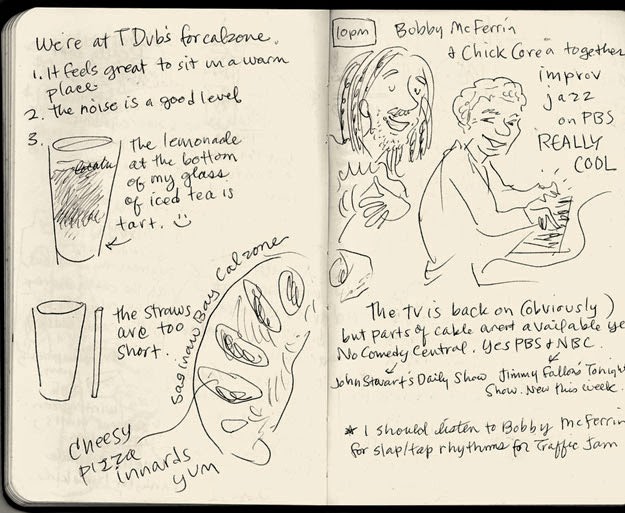 We're at TDub's for calzone.
1. It feels great to sit in a warm
place.
2. the noise is a good level
3.
The lemonade
at the bottom
of my glass
of iced tea is
tart.
the straws
are too
short.
Saginaw Bay Calzone
cheesy
pizza
innards
yum
10pm
Bobby McFerrin
& Chick Corea together
improv
jazz
on PBS
REALLY
COOL
The TV is back on (obviously)
but parts of cable aren't available ye
No Comedy Central. Yes PBS & NBC.
John Stewart's Daily Show
Jimmy Fallon's Tonight
Show. New this week.
* I should listen to Bobby McFerrin
for slap/tap rhythms for Traffic Jam